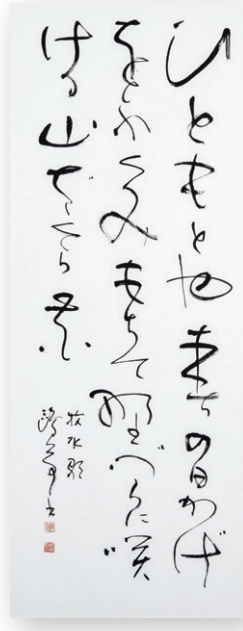 ひともとや春の日かげ
をふくみもちて野づらに咲
ける山ざくら花
牧水歌
書